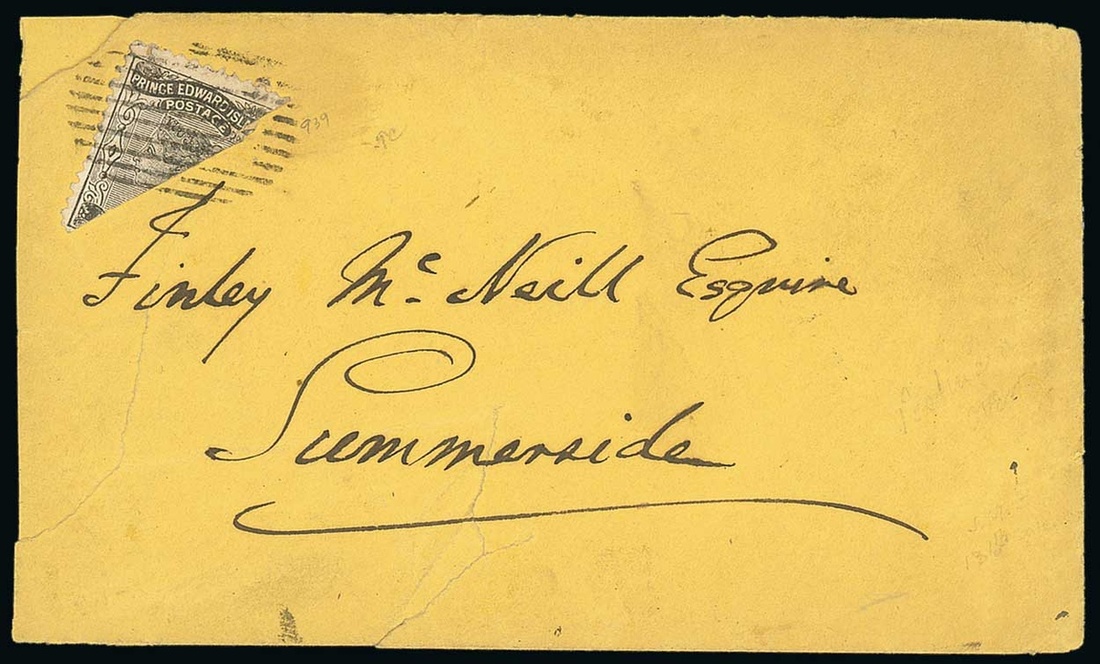 PRINCE EDWARD ISL
POSTAGE
939
Finley Mc. Neill Esquire
Summerside